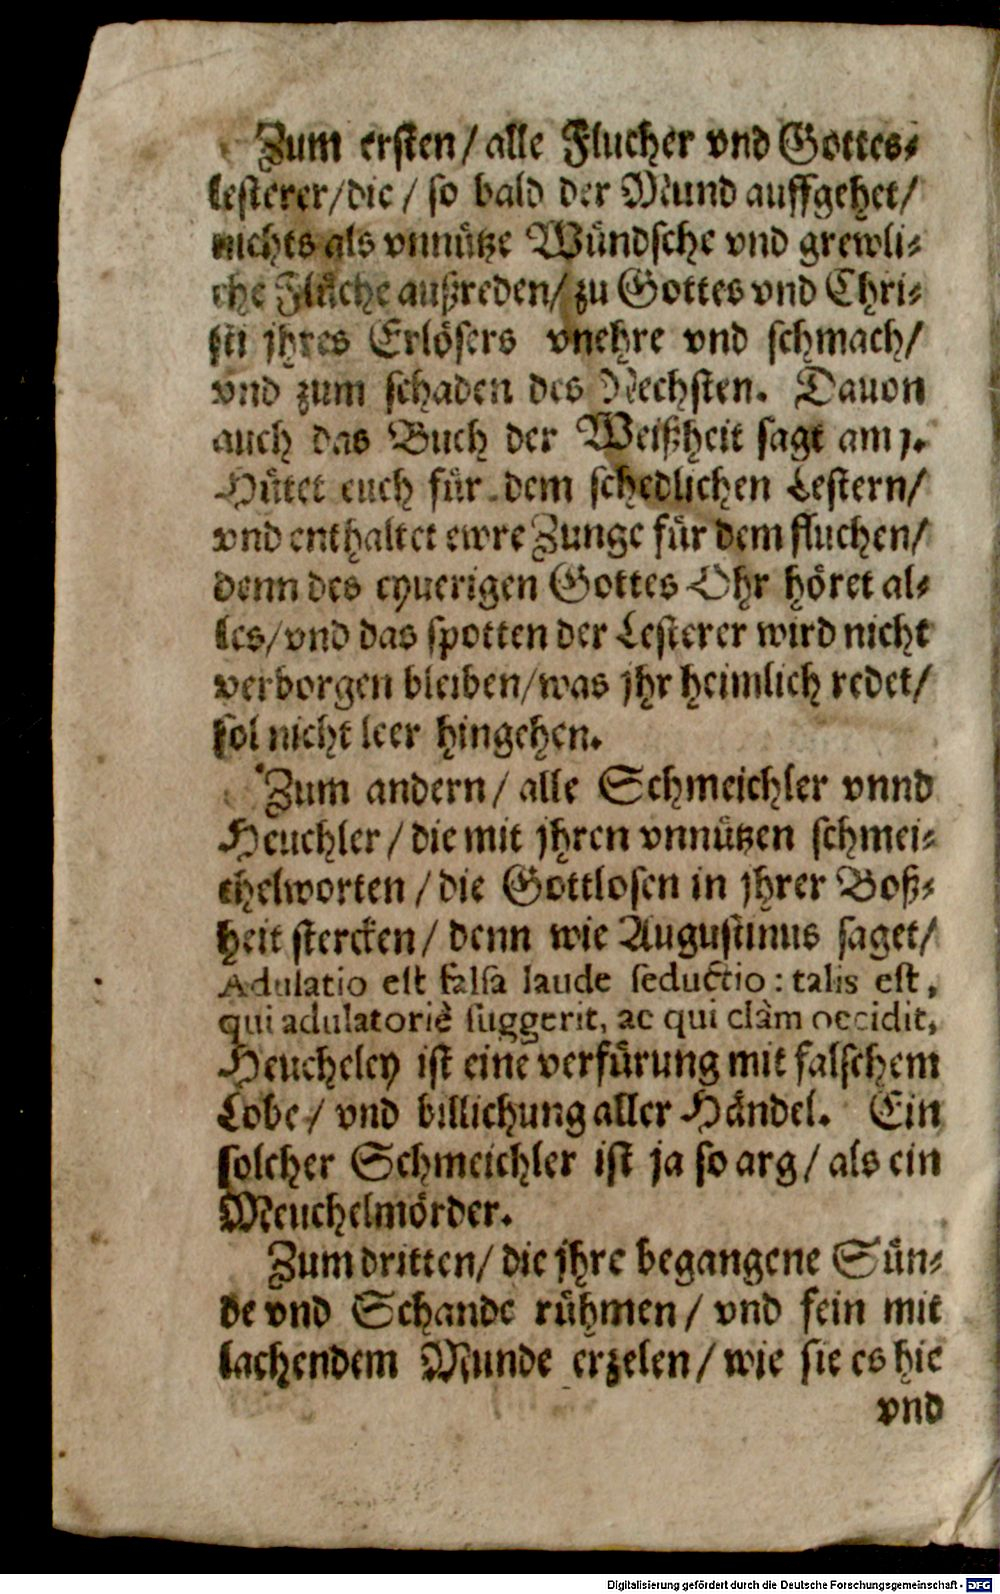 Zum ersten/ alle Flucher vnd Gottes-
lesterer/die/ so bald der Mund auffgehet/
nichts als vnnütze Wündsche vnd grewli-
che Flüche außreden/ zu Gottes vnd Chri-
sti jhres Erlösers vnehre vnd schmach/
vnd zum schaden des Nechsten. Dauon
auch das Buch der Weißheit sagt am 1.
Hütet euch für dem schedlichen Lestern/
vnd enthaltet ewre Zunge für dem fluchen/
denn des eyuerigen Gottes Ohr höret al-
les/vnd das spotten der Lesterer wird nicht
verborgen bleiben/was jhr heimlich redet/
sol nicht leer hingehen.
Zum andern/ alle Schmeichler vnnd
Heuchler/ die mit jhren vnnützen schmei-
chelworten/ die Gottlosen in jhrer Boß-
heit stercken/ denn wie Augustinus saget/
Adulatio est falsa laude seductio: talis est,
qui adulatoriè suggerit, ac qui clàm occidit,
Heucheley ist eine verfürung mit falschem
Lobe/ vnd billichung aller Händel. Ein
solcher Schmeichler ist ja so arg/ als ein
Meuchelmörder.
Zum dritten/ die jhre begangene Sün-
de vnd Schande rühmen/ vnd fein mit
lachendem Munde erzelen/ wie sie es hie
vnd
Digitalisierung gefördert durch die Deutsche Forschungsgemeinschaft - DFG